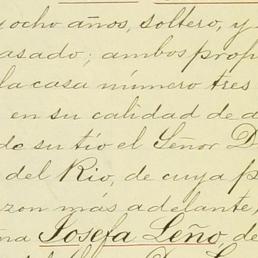 y ocho años, soltero, y
asado; ambos prop
la casa número tres
en su calidad de a
de su tío el Señor D
del Rio, de cuya p
zon más adelante,
na Josefa Leño, de